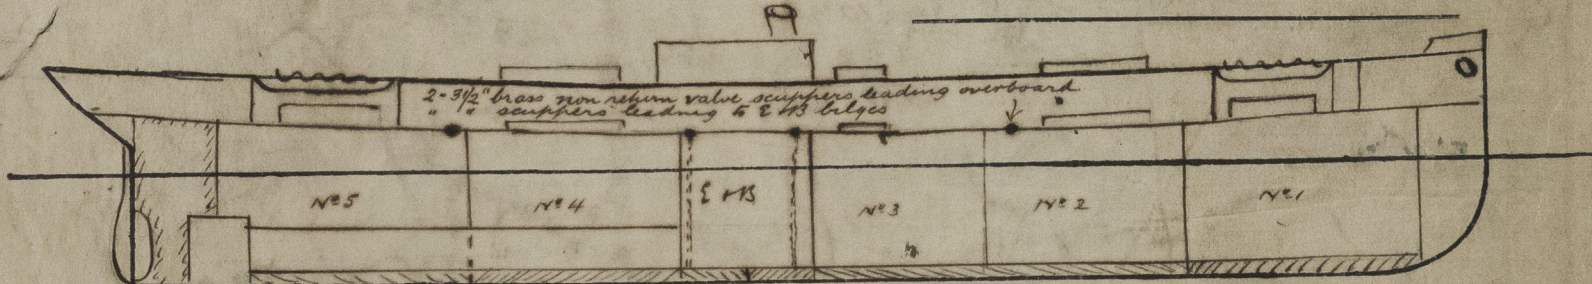 2 - 3 1/2" brass non return valve scuppers leading overboard
" " " scuppers leading to E & B bilges
Nº 5
Nº 4
E & B
Nº 3
Nº 2
Nº 1